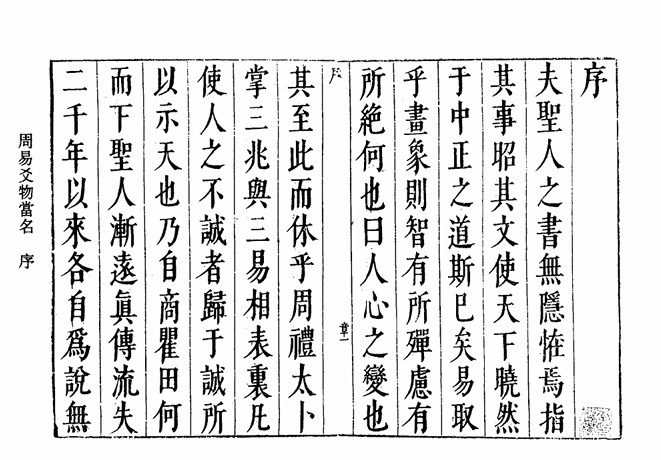 序
夫聖人之書無隱恠焉指
其事昭其文使天下曉然
于中正之道斯已矣易取
乎畫象則智有所殫慮有
所絶何也曰人心之變也
序
章一
其至此而休乎周禮太卜
掌三兆與三易相表裏凡
使人之不誠者歸于誠所
以示天也乃自商瞿田何
而下聖人漸遠眞傳流失
二千年以來各自爲說無
周易爻物當名 序